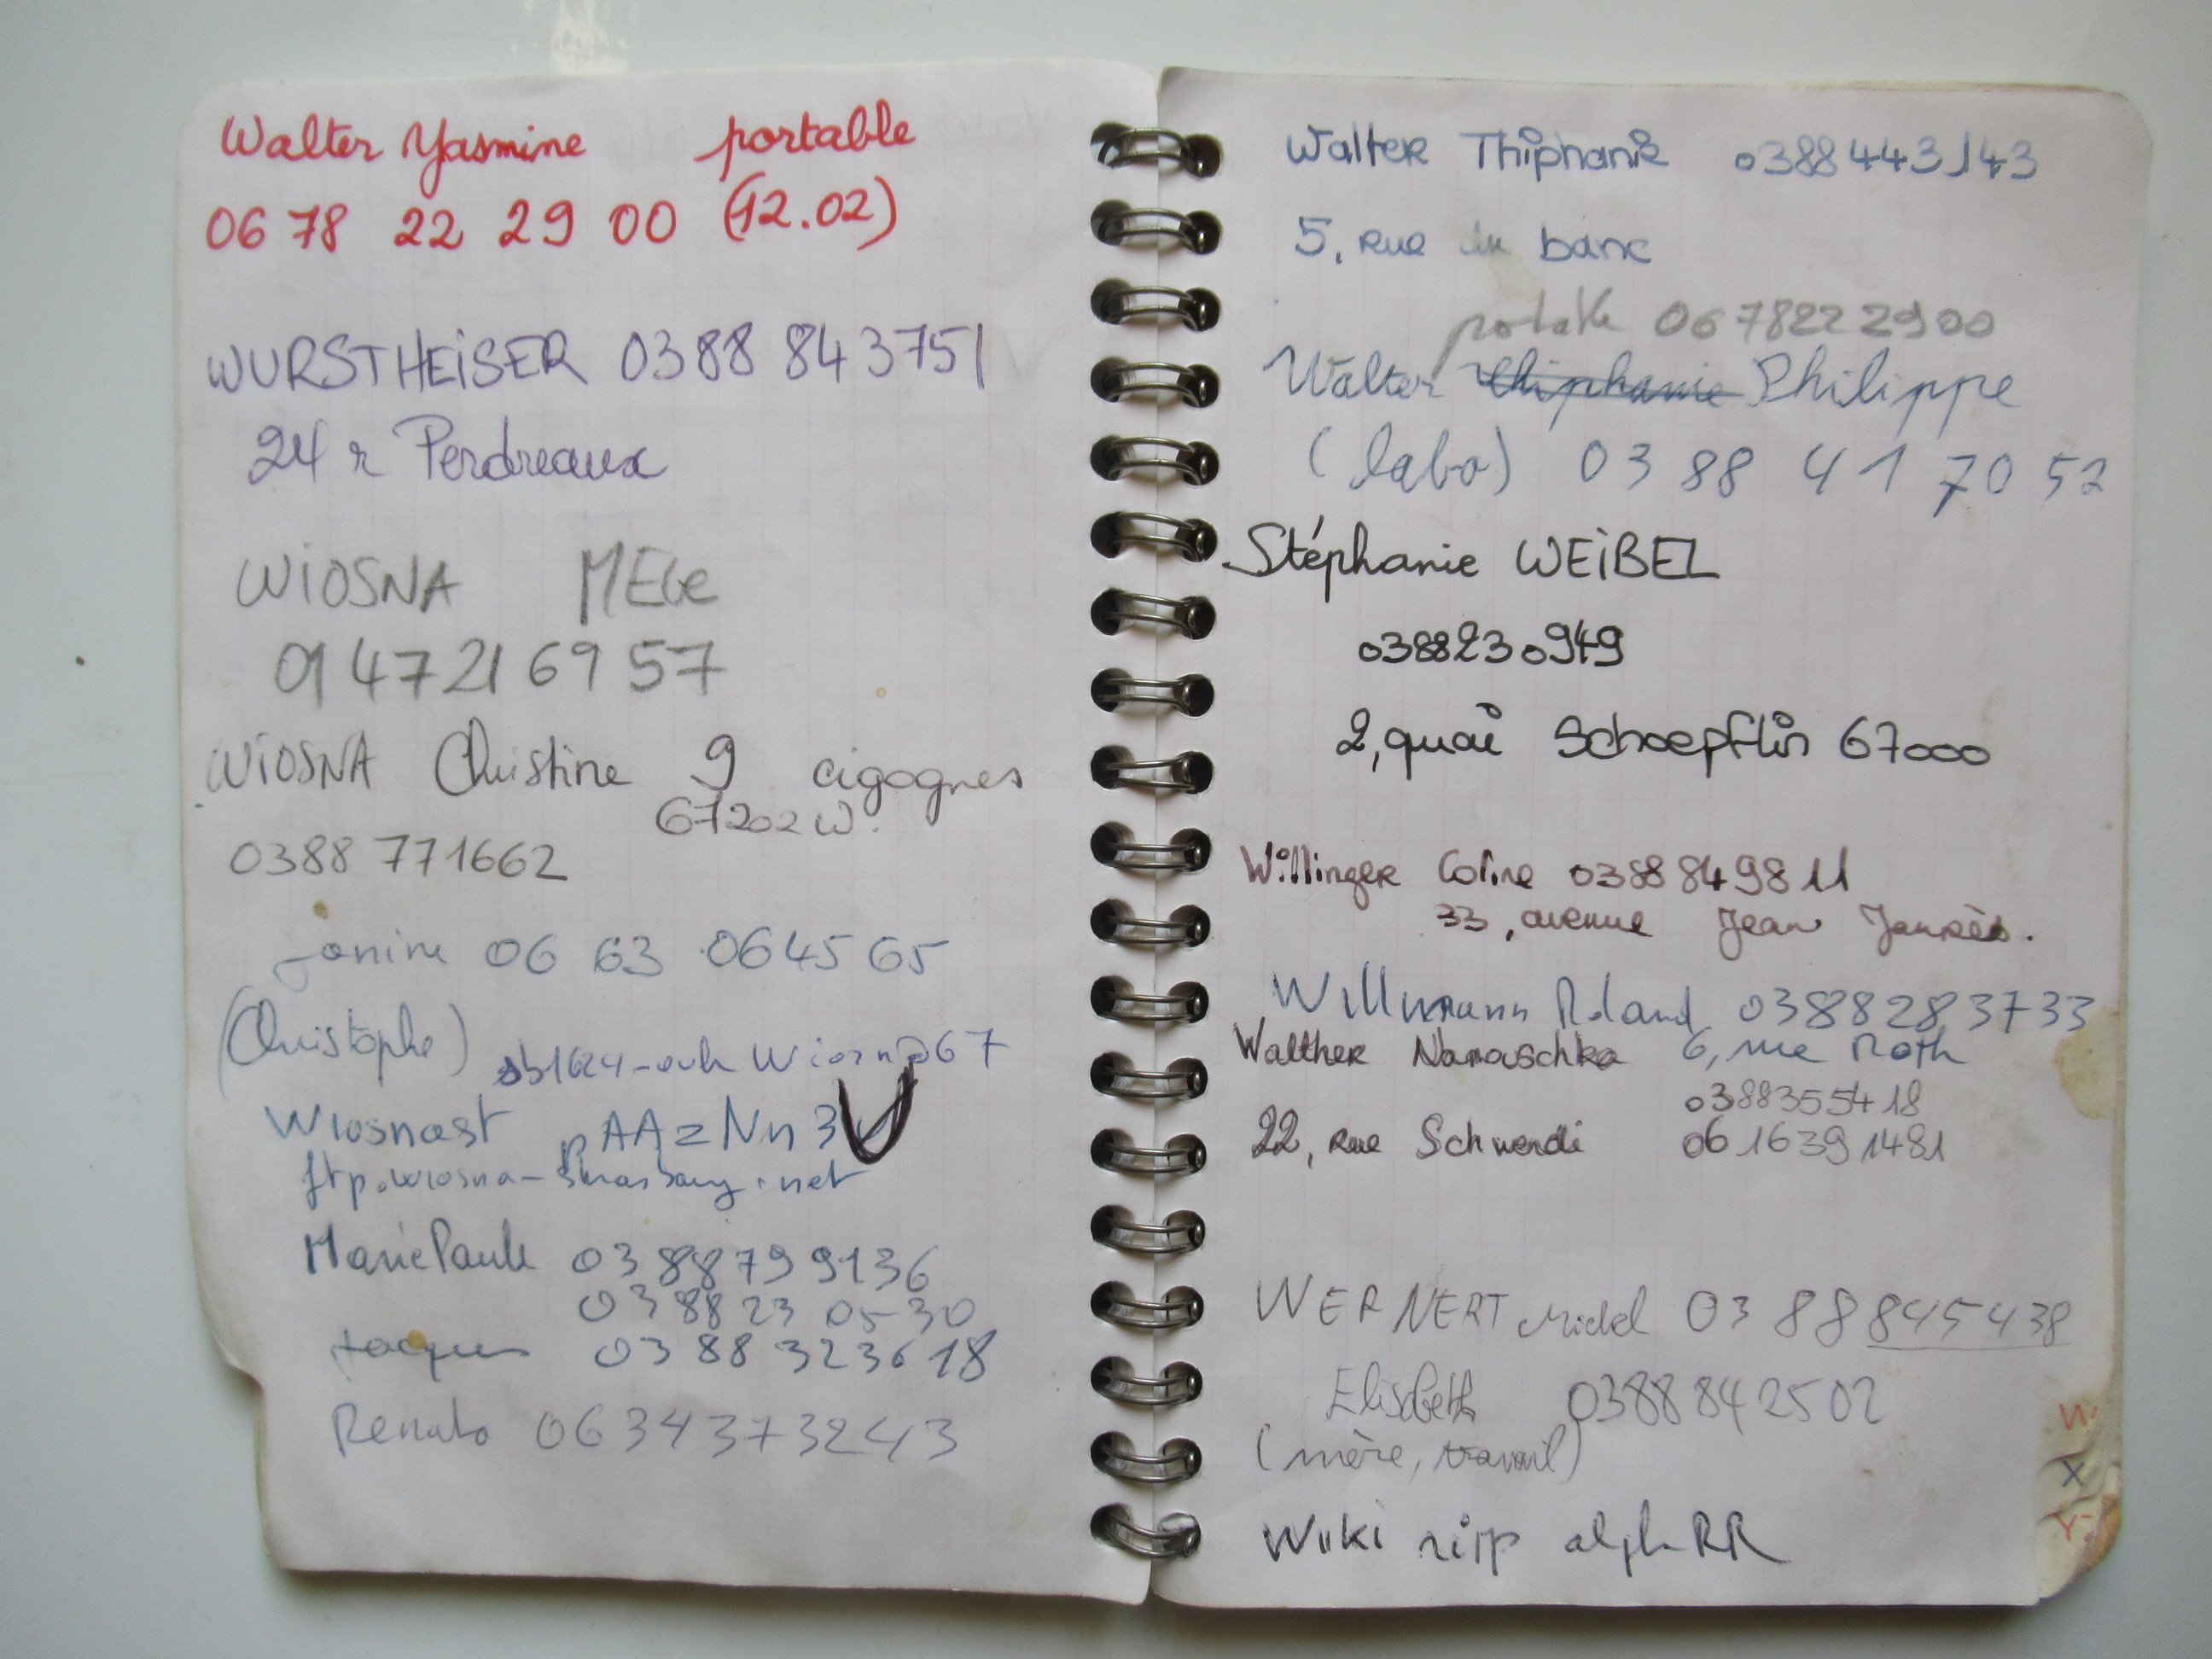 Walter Yasmine portable
06 78 22 29 00 (12.02)
WURSTHEISER 0388 843751
24 r Perdreaux
WIOSNA MELe
01 47 21 69 57
WIOSNA Christine 9 cigognes
67202 W.
0388 771662
Janine 06 63 06 45 65
(Christophe)
Wiosnast pAAzNn3
ftp.wiosna-strasbourg.net
Marie Paule 03 88 79 91 36
03 88 23 05 30
Jacques 03 88 32 36 18
Renato 06 34 37 32 43
Walter Thiphanie 0388443143
5, rue du banc
portable 0678222900
Walter Thiphanie Philippe
(labo) 03 88 41 70 52
Stéphanie WEIBEL
0388230949
2, quai Schoepflin 67000
Willinger Coline 0388849811
33, avenue Jean Jaurès.
Willmann Roland 0388283733
Walther Nanouschka 6, rue Roth
0388355418
22, rue Schwendi 0616391481
WERNERT Michel 03 88 845438
Elisabeth 0388842502
(mère, travail)
Wiki
W
X
Y